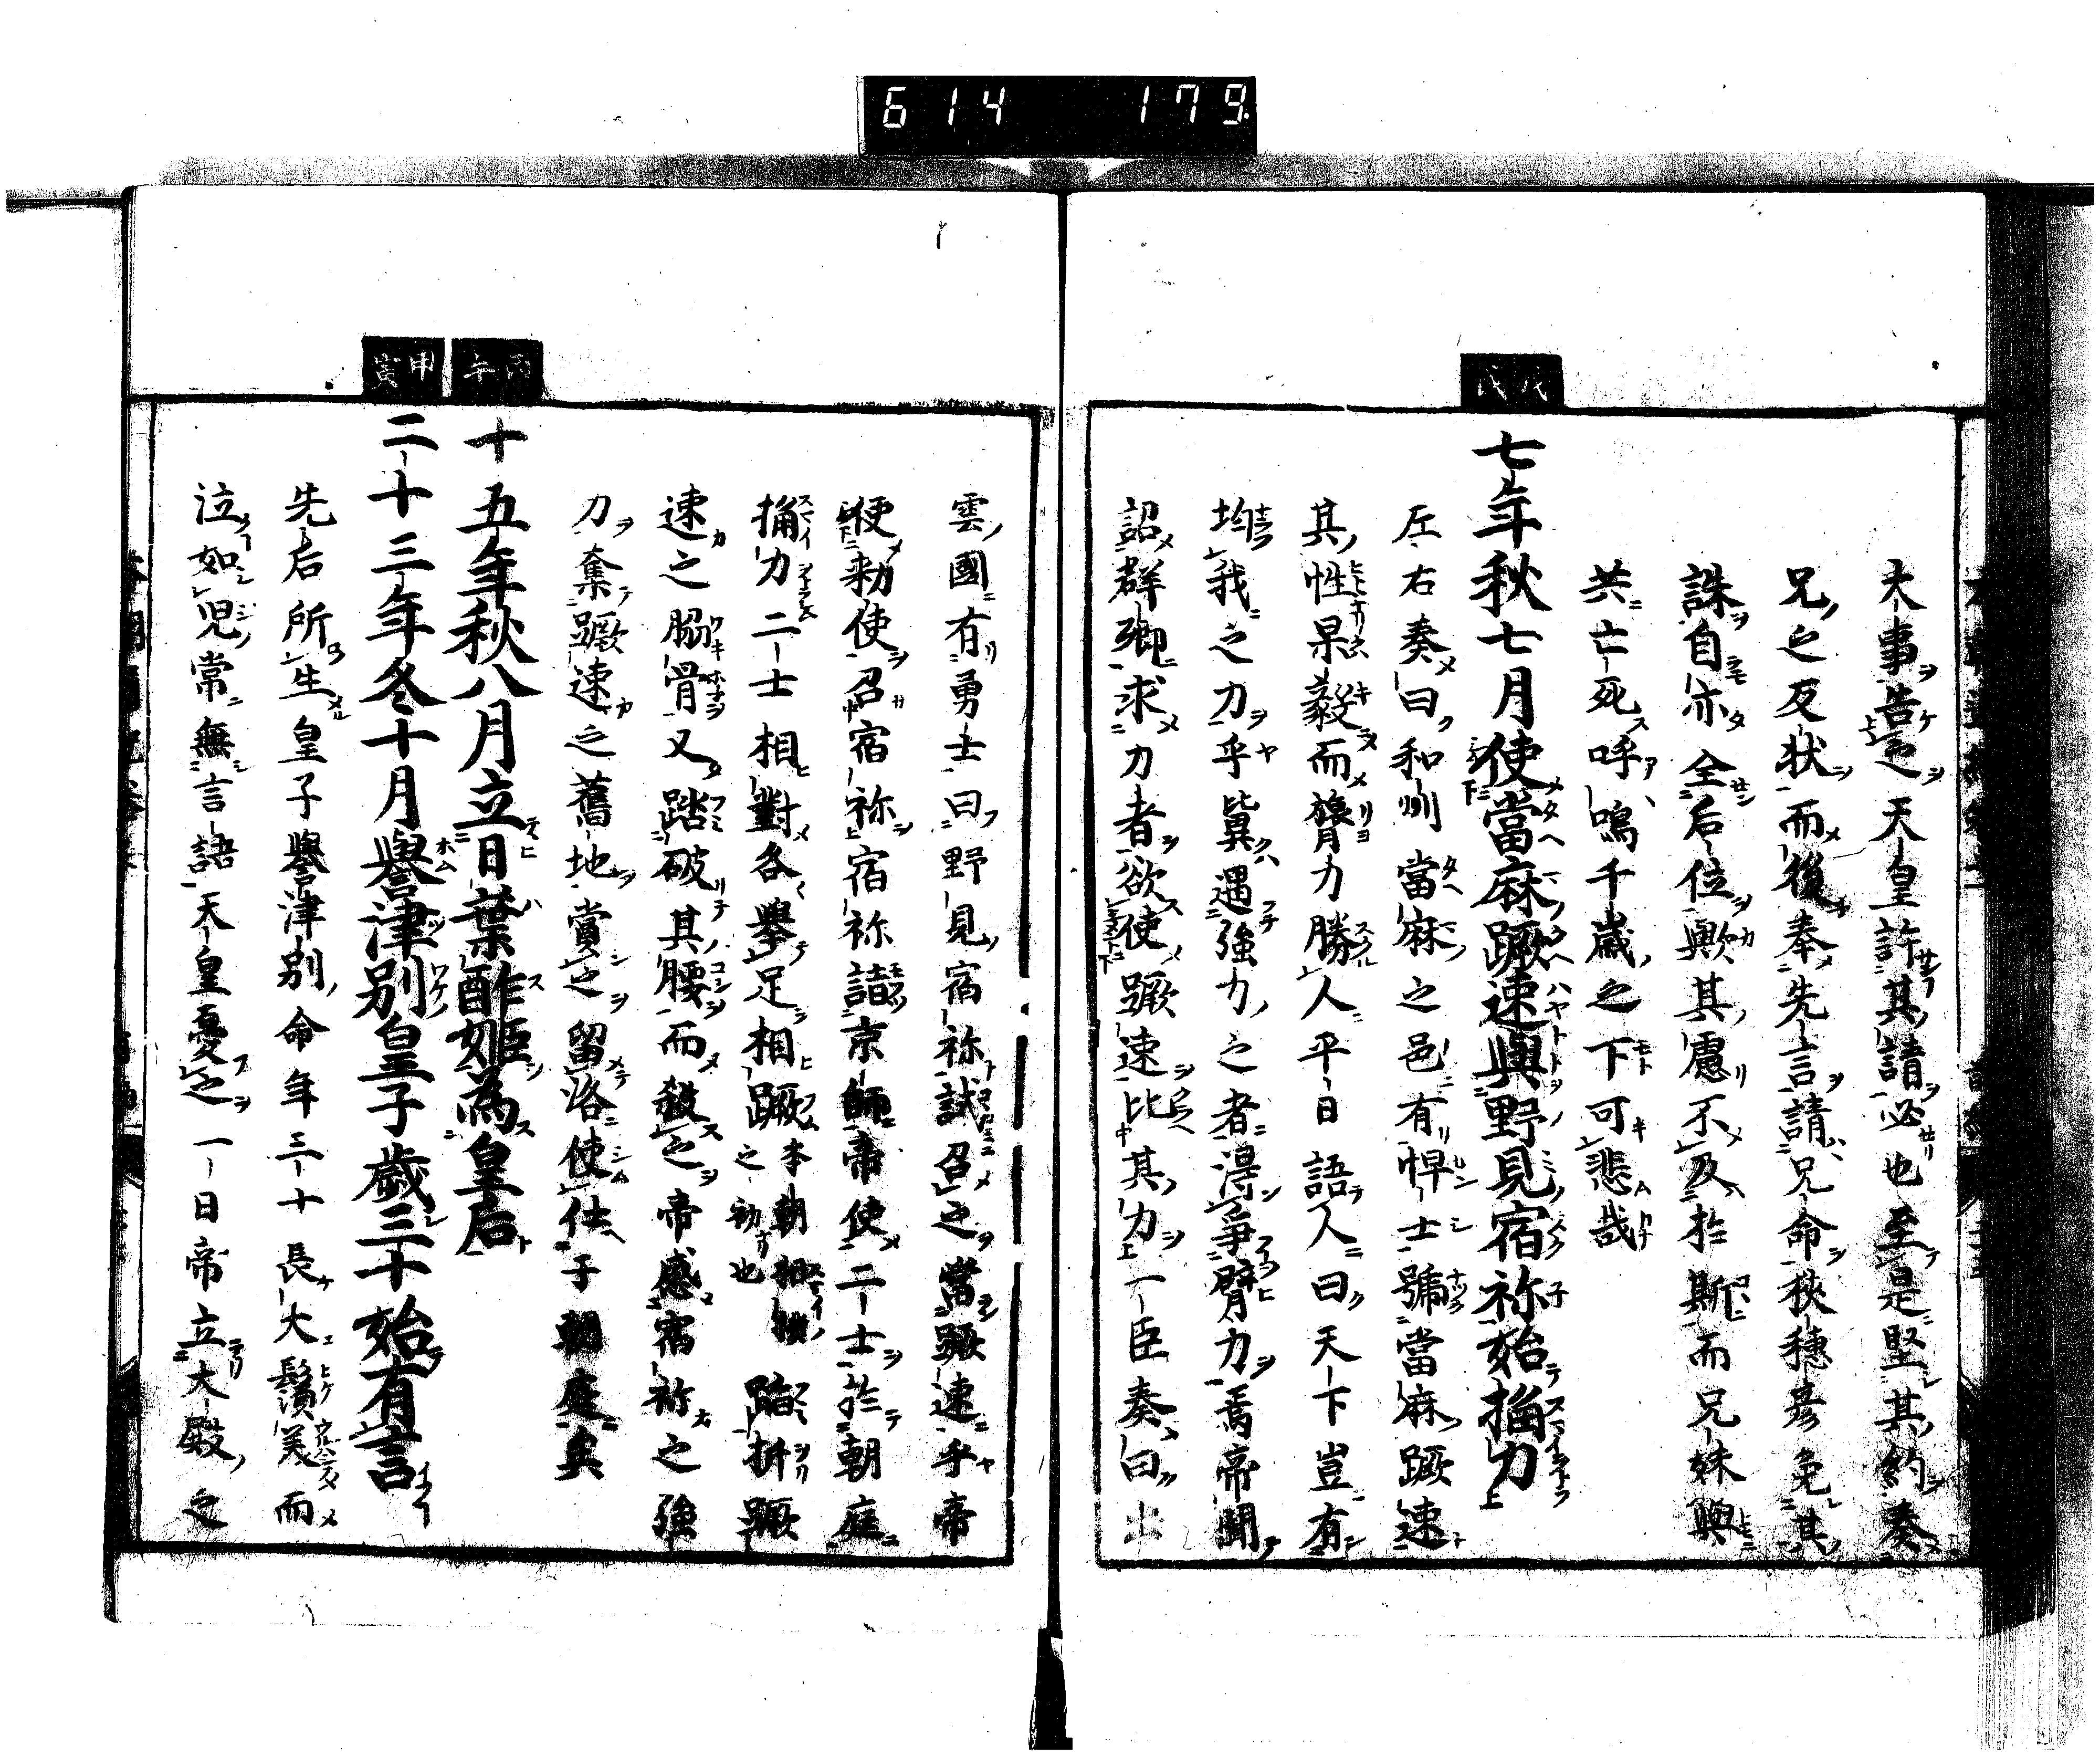 614 179
大事告之天皇許其請必也至是堅其約奏
兄之反状而後奉先言請兄命狭穂彦免其
誅自亦全后位歟其慮不及於斯而兄妹與
共亡死呼嗚千歳之下可悲哉
戊戌
七年秋七月使當麻蹶速與野見宿祢始捔力
左右奏曰和州當麻之邑有悍士號當麻蹶速
其性杲毅而膂力勝人平日語人曰天下豈有
均我之力乎冀遇強力之者得爭臂力焉帝聞
詔群卿求力者欲使蹶速比其力一臣奏曰出
雲國有勇士曰野見宿祢試召之當蹶速乎帝
便勅使召宿祢宿祢詣京師帝使二士於朝庭
捔力二士相對各擧足相蹶本朝相撲之初也踏折蹶
速之脇骨又踏破其腰而殺之帝感宿祢之強
力奪蹶速之舊地賞之留洛使仕于朝庭矣
丙午
十五年秋八月立日葉酢姫為皇后
甲寅
二十三年冬十月譽津別皇子歳三十始有言
先后所生皇子譽津別命年三十長大鬚美而
泣如児常無言語天皇憂之一日帝立大殿之